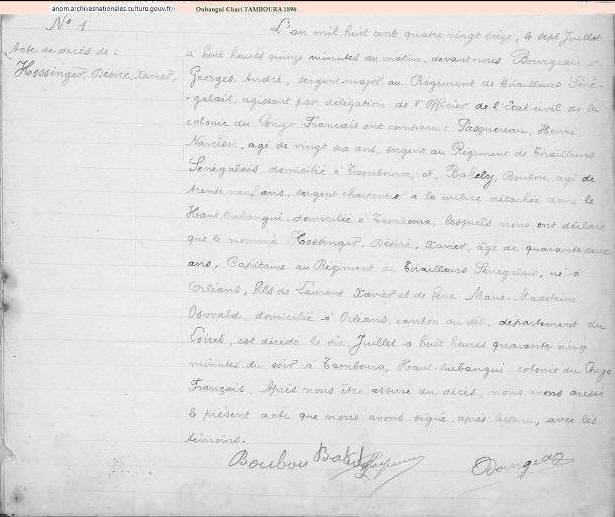 anom.archivesnationales.culture.gouv.fr/
Oubangui Chari TAMBOURA 1896
N° 1
Acte de décès de
Hossinger, Désiré, Xavier,
L'an mil huit cent quatre vingt seize, le sept Juillet
à huit heures quinze minutes du matin, devant nous Bourgeau
Georges, André, sergent major au Régiment de Tirailleurs Séné-
-galais, agissant par délégation de l'Officier de l'Etat-civil de la
colonie du Congo Français ont comparu: Pasquereau, Henri
Narcisse, age de vingt six ans, sergent au Régiment de Tirailleurs
Sénégalais, domicilié à Tamboura, et, Bakely, Boubou, agé de
trente neuf ans, sergent charpentier à la milice détachée dans le
Haut Oubangui, domicilié à Tamboura, lesquels nous ont déclaré
que le nommé Hossinger, Désiré, Xavier, âge de quarante deux
ans, Capitaine au Régiment de Tirailleurs Sénégalais, né à
Orléans, fils de Laurent Xavier et de feue Marie-Madeleine
Oswald domicilié à Orléans canton du dit, département du
Loiret, est décédé le six Juillet à huit heures quarante cinq
minutes du soir à Tamboura, Haut-Oubangui colonie du Congo
Français. Après nous être assuré du décès, nous avons dressé
le présent acte que nous avons signé, après lecture, avec les
témoins.
Boubou Bakely
Bourgeau